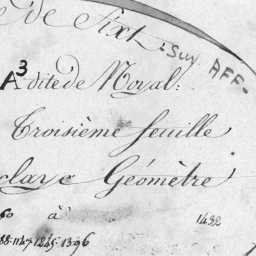 de Sixt
Suy AFF-
A3 dite de Noyal:
Troisième feuille
clave Géomètre
à 1432
88·1147·1245·1396